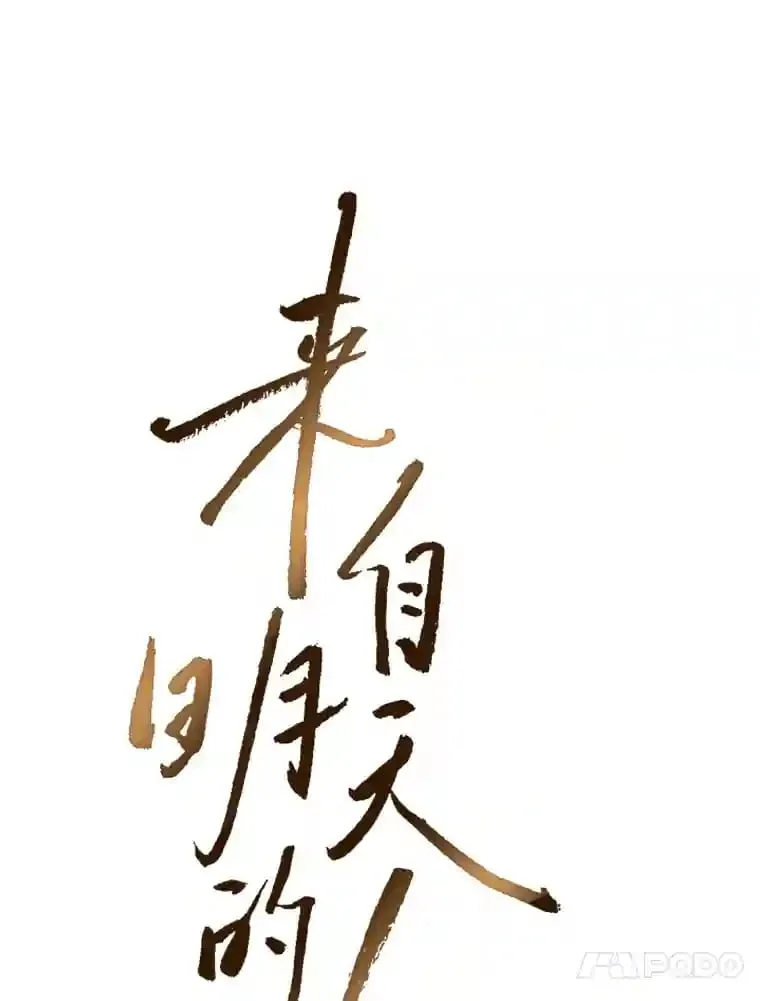 来自
明天
的
PODO